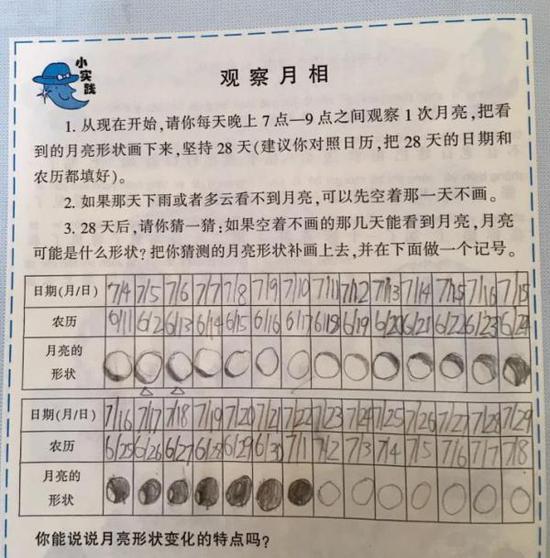 小实践
观察月相
1. 从现在开始,请你每天晚上 7 点—9 点之间观察 1 次月亮,把看
到的月亮形状画下来,坚持 28 天(建议你对照日历,把 28 天的日期和
农历都填好)。
2. 如果那天下雨或者多云看不到月亮,可以先空着那一天不画。
3. 28 天后,请你猜一猜:如果空着不画的那几天能看到月亮,月亮
可能是什么形状?把你猜测的月亮形状补画上去,并在下面做一个记号。
日期(月/日) 7/4 7/5 7/6 7/7 7/8 7/9 7/10 7/11 7/12 7/13 7/14 7/15
农历 6/11 6/2 6/13 6/14 6/15 6/16 6/17 6/18 6/19 6/20 6/21 6/22 6/23 6/24
月亮的
形状
日期(月/日) 7/16 7/17 7/18 7/19 7/20 7/21 7/22 7/23 7/24 7/25 7/26 7/27 7/28 7/29
农历 6/25 6/26 6/27 6/28 6/29 6/30 7/1 7/2 7/3 7/4 7/5 7/6 7/7 7/8
月亮的
形状
你能说说月亮形状变化的特点吗?